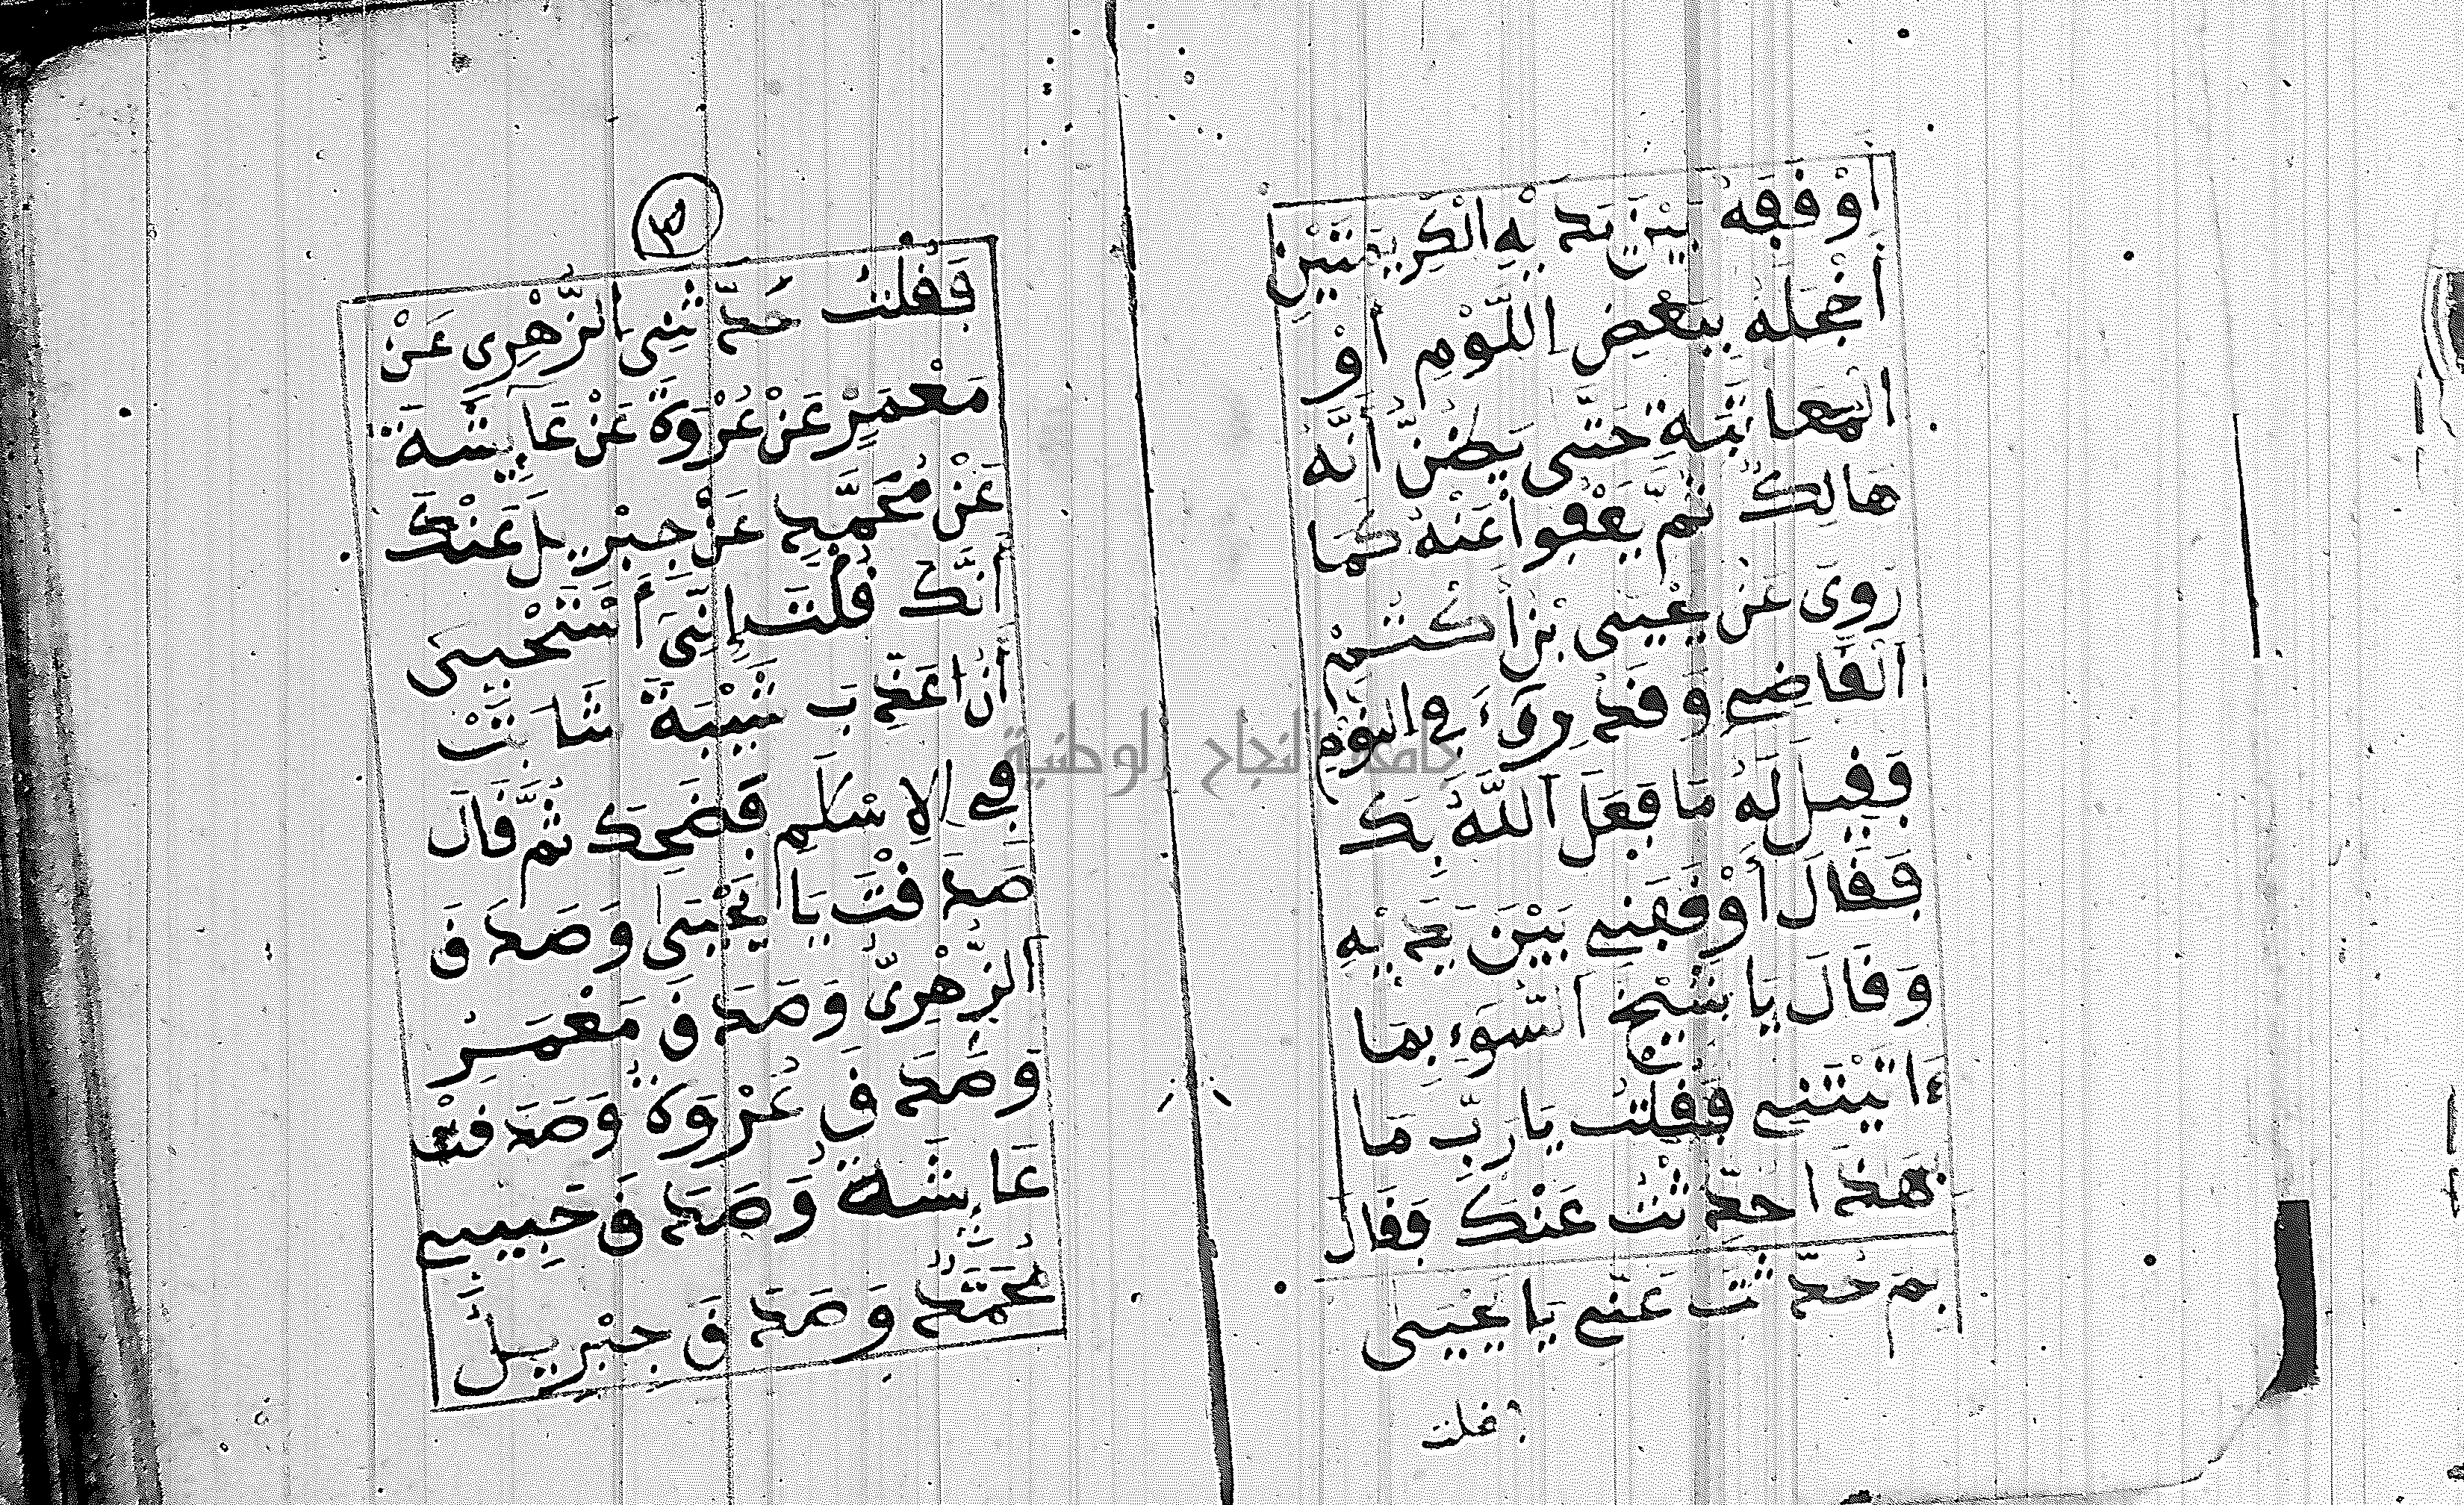 أَوْفَفَهُ بَيْنَ يَدَيْهِ الْكَرِيمَتَيْنِ
أَخْجَلَهُ بِبَعْضِ اللَّوْمِ أَوْ
الْمُعَاتَبَةِ حَتَّى يَظُنَّ أَنَّهُ
هَالِكٌ ثُمَّ يَعْفُوا عَنْهُ كَمَا
رُوِىَ عَنْ يَحْيَى بْنِ أَكْثَمْ
الْقَاضِي وَقَدْ رِيءَ فِي النَّوْمِ
فَقِيلَ لَهُ مَا فَعَلَ اللَّهُ بِكَ
فَقَالَ أَوْقَفَنِي بَيْنَ يَدَيْهِ
وَقَالَ يَا شَيْخَ السُّوءِ بِمَا
ءَاتَيْتَنِي فَقُلْتُ يَا رَبِّ مَا
هَذَا حُدِّثْتُ عَنْكَ فَقَالَ
بِمَ حُدِّثْتَ عَنِّي يَا يَحْيَى
فقلت
٣
فَقُلْتُ حَدَّثَنِي الزُّهْرِي عَنْ
مَعْمَرٍ عَنْ عُرْوَةَ عَنْ عَايِشَةَ
عَنْ مُحَمَّدٍ عَنْ جِبْرِيلَ عَنْكَ
أَنَّكَ قُلْتَ إِنِّي أَسْتَحْيِى
أَنْ أُعَذِّبَ شَيْبَةً شَابَتْ
فِي الْإِسْلَمِ فَضَحِكَ ثُمَّ قَالَ
صَدَقْتَ يَا يَحْيَى وَصَدَقَ
الزُّهْرِىُّ وَصَدَقَ مَعْمَرُ
وَصَدَقَ عُرْوَةُ وَصَدَقَتْ
عَايِشَةُ وَصَدَقَ حَبِيبِي
مُحَمَّدٌ وَصَدَقَ جِبْرِيلُ
جامعة النجاح الوطنية